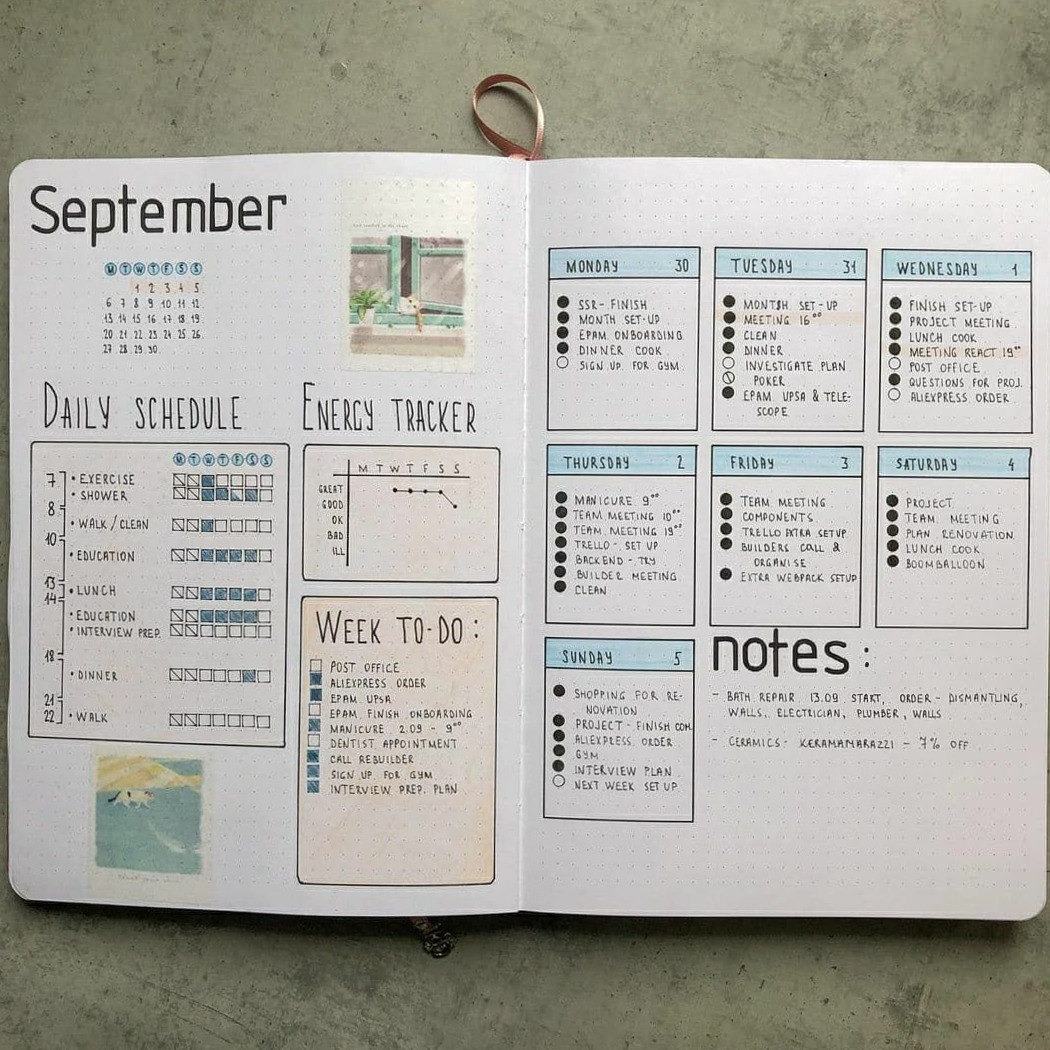 September
M T W T F S S
1 2 3 4 5
6 7 8 9 10 11 12
13 14 15 16 17 18 19
20 21 22 23 24 25 26
27 28 29 30
DAILY SCHEDULE
M T W T F S S
7
• EXERCISE
• SHOWER
8
• WALK / CLEAN
10
• EDUCATION
13
• LUNCH
14
• EDUCATION
• INTERVIEW PREP.
18
• DINNER
21
22 • WALK
ENERGY TRACKER
M T W T F S S
GREAT
GOOD
OK
BAD
ILL
WEEK TO-DO:
POST OFFICE
ALIEXPRESS ORDER
EPAM UPSA
EPAM FINISH ONBOARDING
MANICURE 2.09 - 9⁰⁰
DENTIST APPOINTMENT
CALL REBUILDER
SIGN UP FOR GYM
INTERVIEW PREP. PLAN
MONDAY 30
SSR- FINISH
MONTH SET-UP
EPAM ONBOARDING
DINNER COOK
SIGN UP FOR GYM
TUESDAY 31
MONTSH SET-UP
MEETING 16⁰⁰
CLEAN
DINNER
INVESTIGATE PLAN
POKER
EPAM UPSA & TELE-
SCOPE
WEDNESDAY 1
FINISH SET-UP
PROJECT MEETING
LUNCH COOK
MEETING REACT 19⁰⁰
POST OFFICE
QUESTIONS FOR PROJ.
ALIEXPRESS ORDER
THURSDAY 2
MANICURE 9⁰⁰
TEAM MEETING 10⁰⁰
TEAM MEETING 19⁰⁰
TRELLO - SET UP
BACKEND - TRY
BUILDER MEETING
CLEAN
FRIDAY 3
TEAM MEETING
COMPONENTS
TRELLO EXTRA SETUP
BUILDERS CALL &
ORGANISE
EXTRA WEBPACK SETUP
SATURDAY 4
PROJECT
TEAM MEETING
PLAN RENOVATION
LUNCH COOK
BOOMBALLOON
SUNDAY 5
SHOPPING FOR RE-
NOVATION
PROJECT - FINISH COM.
ALIEXPRESS ORDER
GYM
INTERVIEW PLAN
NEXT WEEK SET UP
notes:
- BATH REPAIR 13.09 START, ORDER - DISMANTLING,
WALLS, ELECTRICIAN, PLUMBER, WALLS
- CERAMICS: KERAMAMARAZZI - 7% OFF